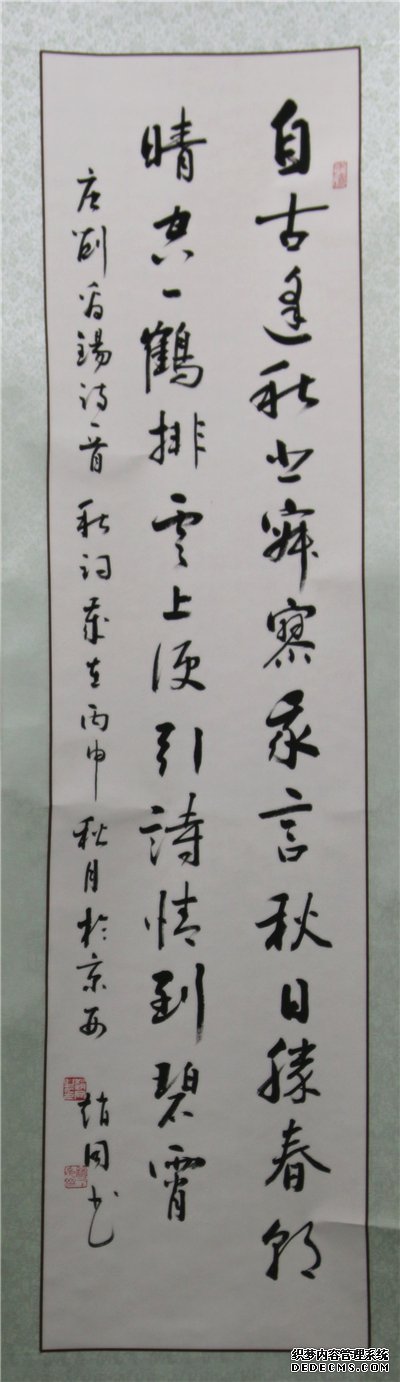 自古逢秋悲寂寥我言秋日胜春朝
晴空一鹤排云上便引詩情到碧霄
唐刘禹锡诗一首秋词歲在丙申秋月於京西
趙同书
织梦内容管理系统
DEDECMS.COM